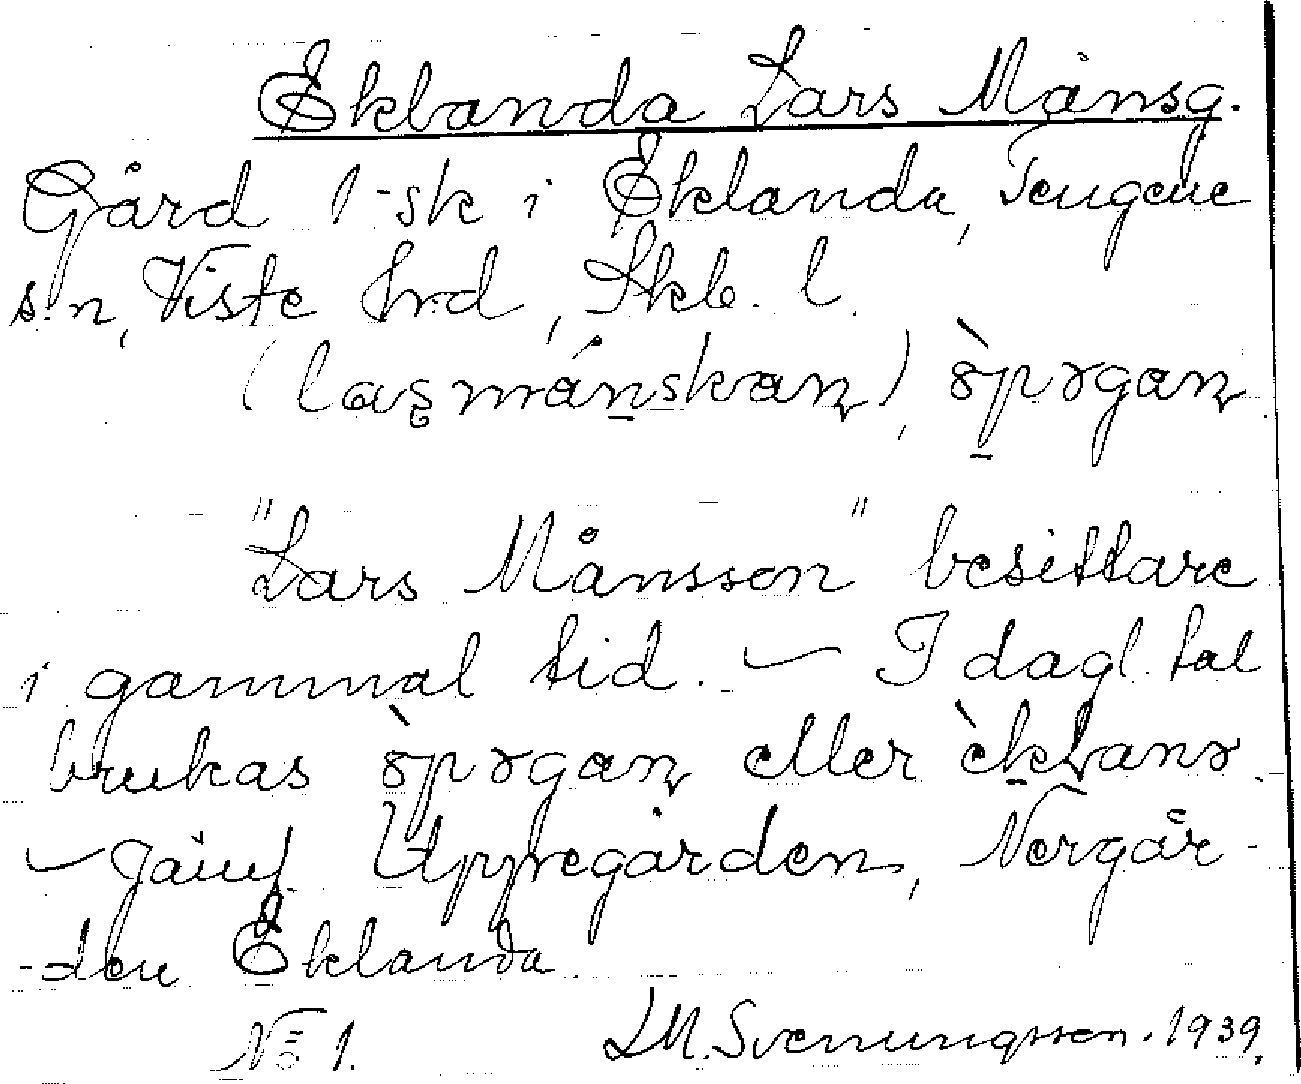 Eklanda Lars Månsg.
Gård 1-sk i Eklanda, Tengene
s:n, Viste hrd, Skb. l.
(laşmánskan), òpɘgan
"Lars Månsson" besittare
i gammal tid. — I dagl. tal
brukas òpɘgan eller èklanɘ.
— Jämf Uppregården, Nergår-
-den Eklanda
No 1. LM. Svenungsson. 1939.